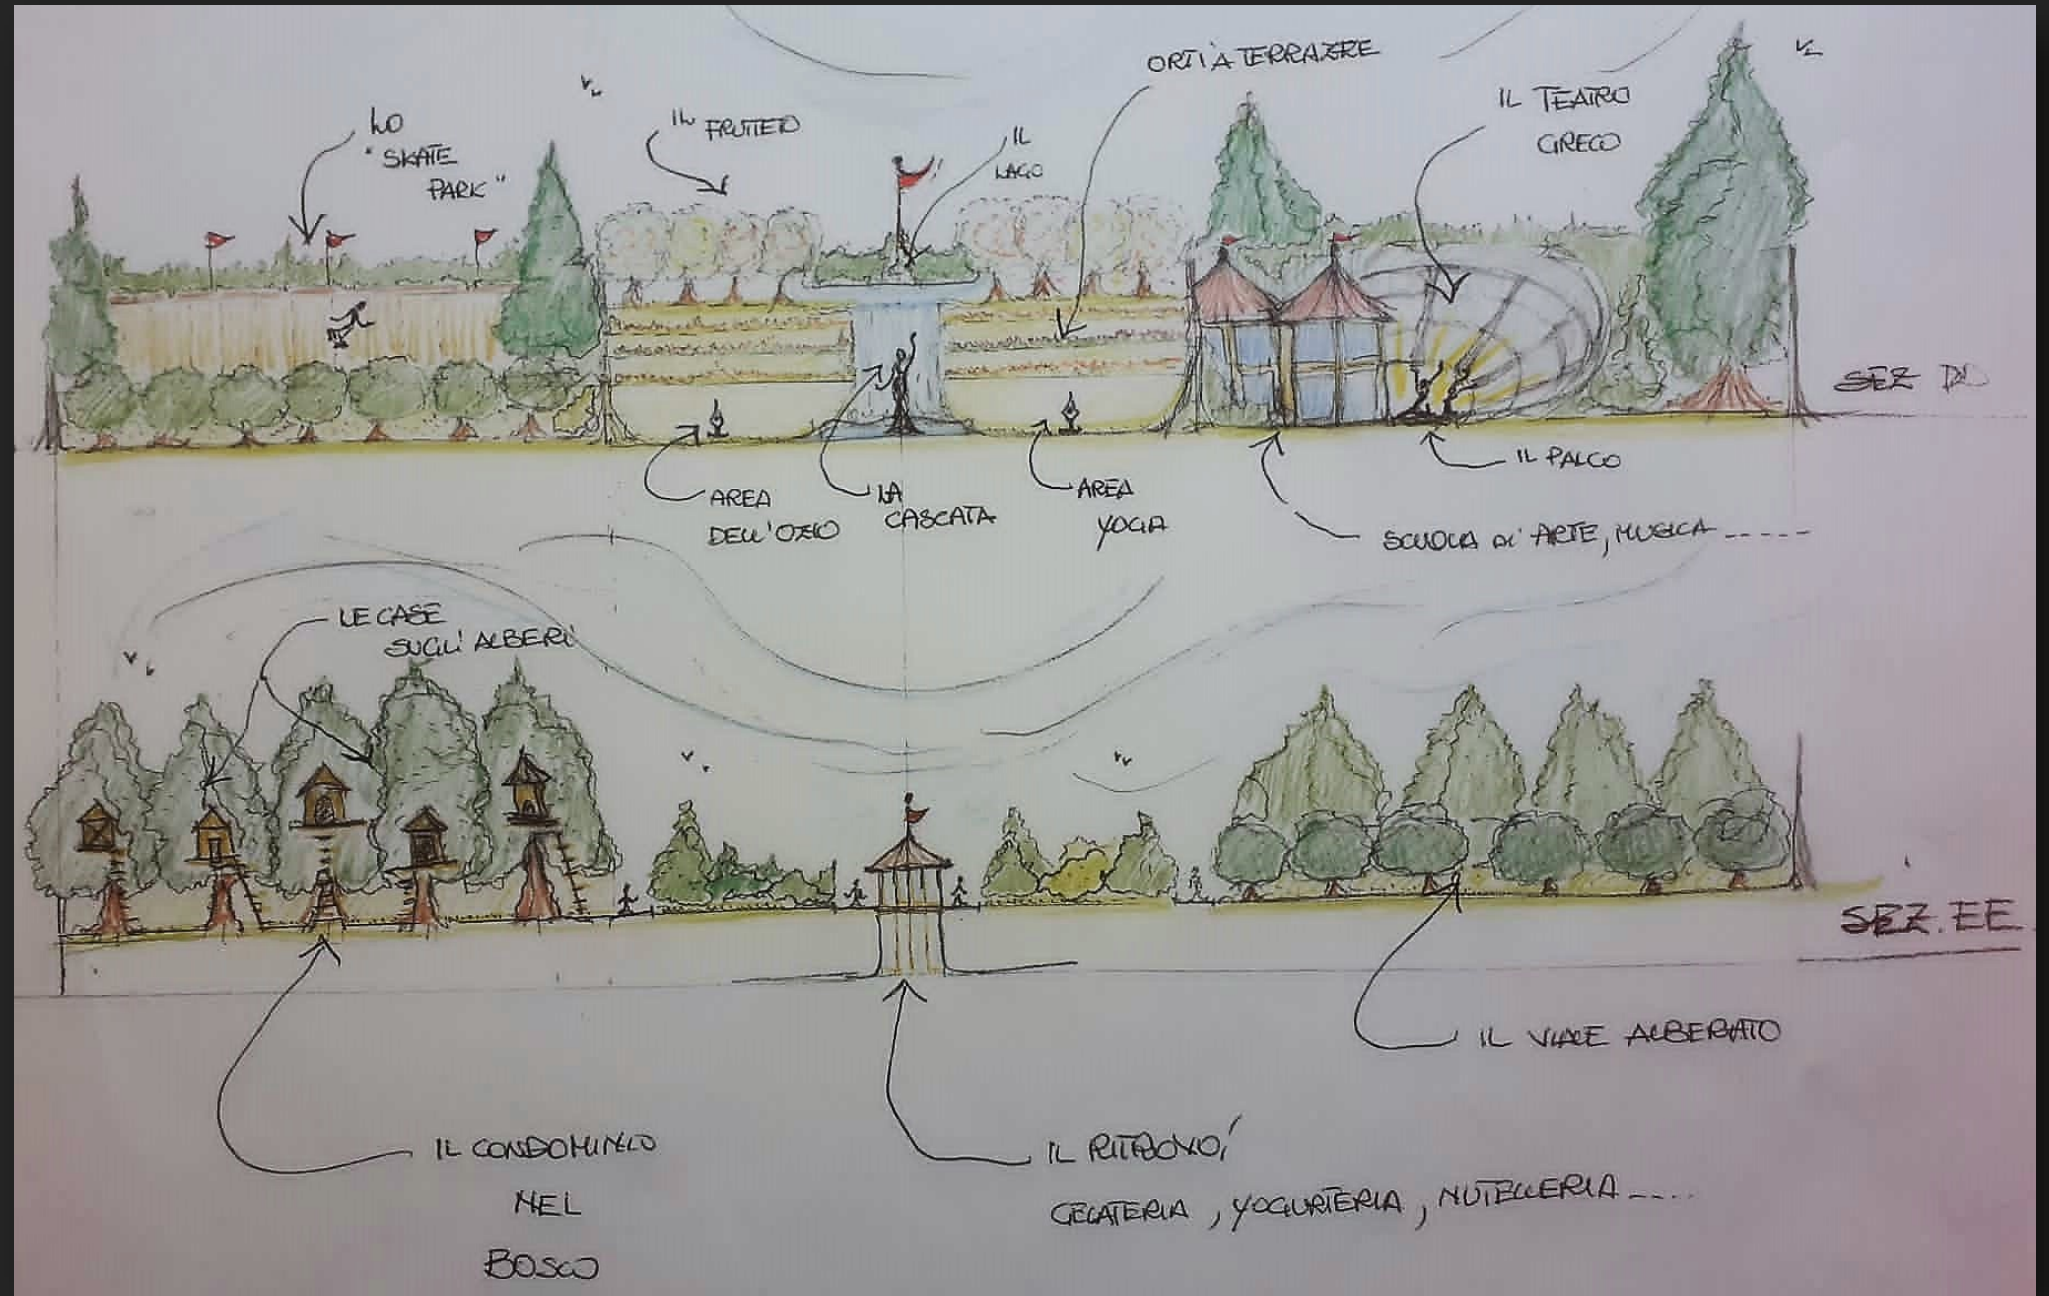 LO
"SKATE
PARK"
IL FRUTTETO
IL
LAGO
ORTI A TERRAZZE
IL TEATRO
GRECO
SEZ DD
AREA
DELL'OZIO
LA
CASCATA
AREA
YOGA
IL PALCO
SCUOLA DI ARTE, MUSICA -----
LE CASE
SUGLI ALBERI
SEZ. EE
IL VIALE ALBERATO
IL CONDOMINIO
NEL
BOSCO
IL RITROVO,
GELATERIA, YOGURTERIA, NUTELLERIA ----